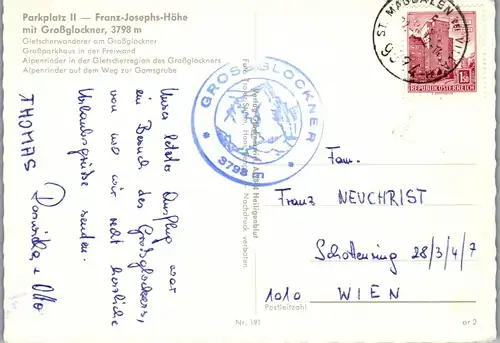 Parkplatz II — Franz-Josephs-Höhe
mit Großglockner, 3798 m
Gletscherwanderer am Großglockner
Großparkhaus in der Freiwand
Alpenrinder in der Gletscherregion des Großglockners
Alpenrinder auf dem Weg zur Gamsgrube
Unser letzter Ausflug war
ein Besuch des Großglockners,
von wo wir recht herzliche
Urlaubsgrüße senden.
THOMAS
+ Otto
GROSSGLOCKNER
3798
Heiligenblut
Nachdruck verboten
ST. MAGDALEN BEI
REPUBLIK ÖSTERREICH
Fam.
Franz NEUCHRIST
Schottenring 28/3/4/7
1010 WIEN
Postleitzahl
Nr. 191
or 2